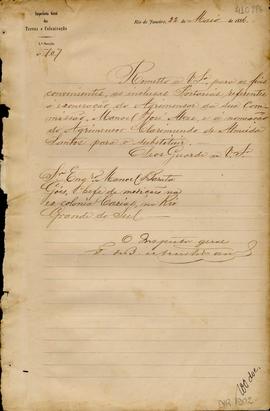 Inspectoria Geral
das
Terras e Colonisação
Rio de Janeiro, 22 de Maio de 188
Nº 107
Remetto a V. Sª para os fins
convenientes, as inclusas Portarias referentes
a exoneração do Agrimensor da sua Com
missão, Manoel José Alves, e a nomeação
do Agrimensor Claremundo de Almeida
Santos para o substituir.
Deos Guarde a V. Sª
Sr. Engº Manoel Barata
Góis, Chefe de medição na
ex colonia Caxias, no Rio
Grande do Sul
O Inspector geral
100 doc.